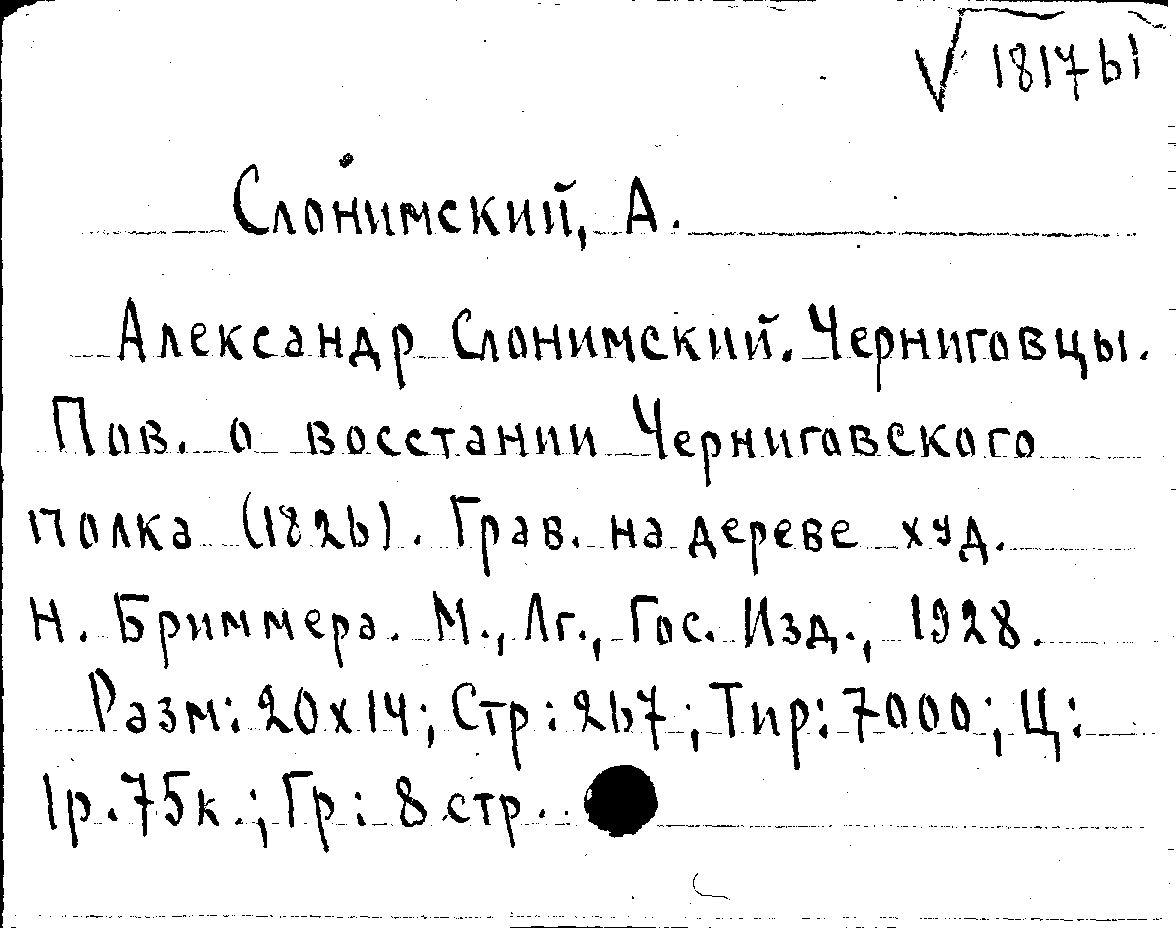 √181761
Слонимский, А.
Александр Слонимский. Черниговцы.
Пов. о восстании Черниговского
полка (1826). Грав. на дереве худ.
Н. Бриммера. М., Лг., Гос. Изд., 1928.
Разм: 20х14; Стр: 267; Тир: 7000; Ц:
1р. 75к.; Гр: 8 стр.